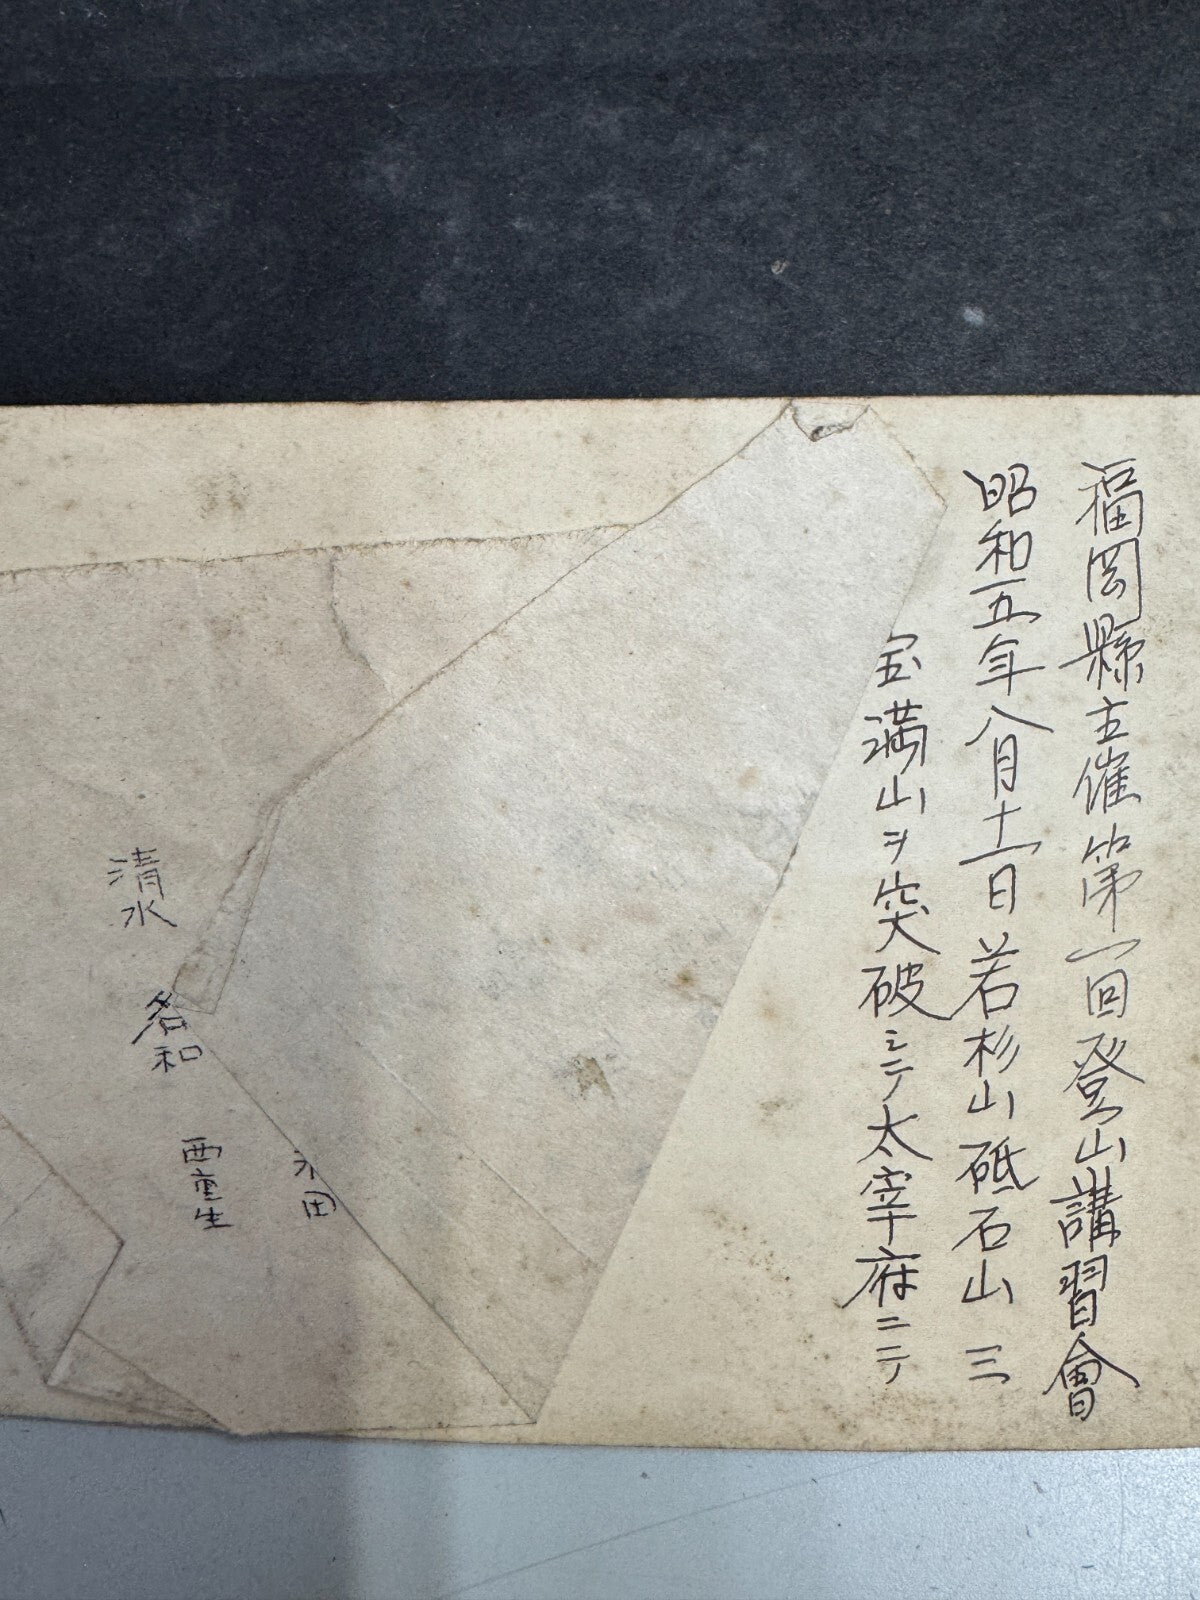 福岡縣主催第一回登山講習會
昭和五年八月十一日若杉山砥石山三
宝満山ヲ突破シテ太宰府ニテ
永田
西重生
名和
清水